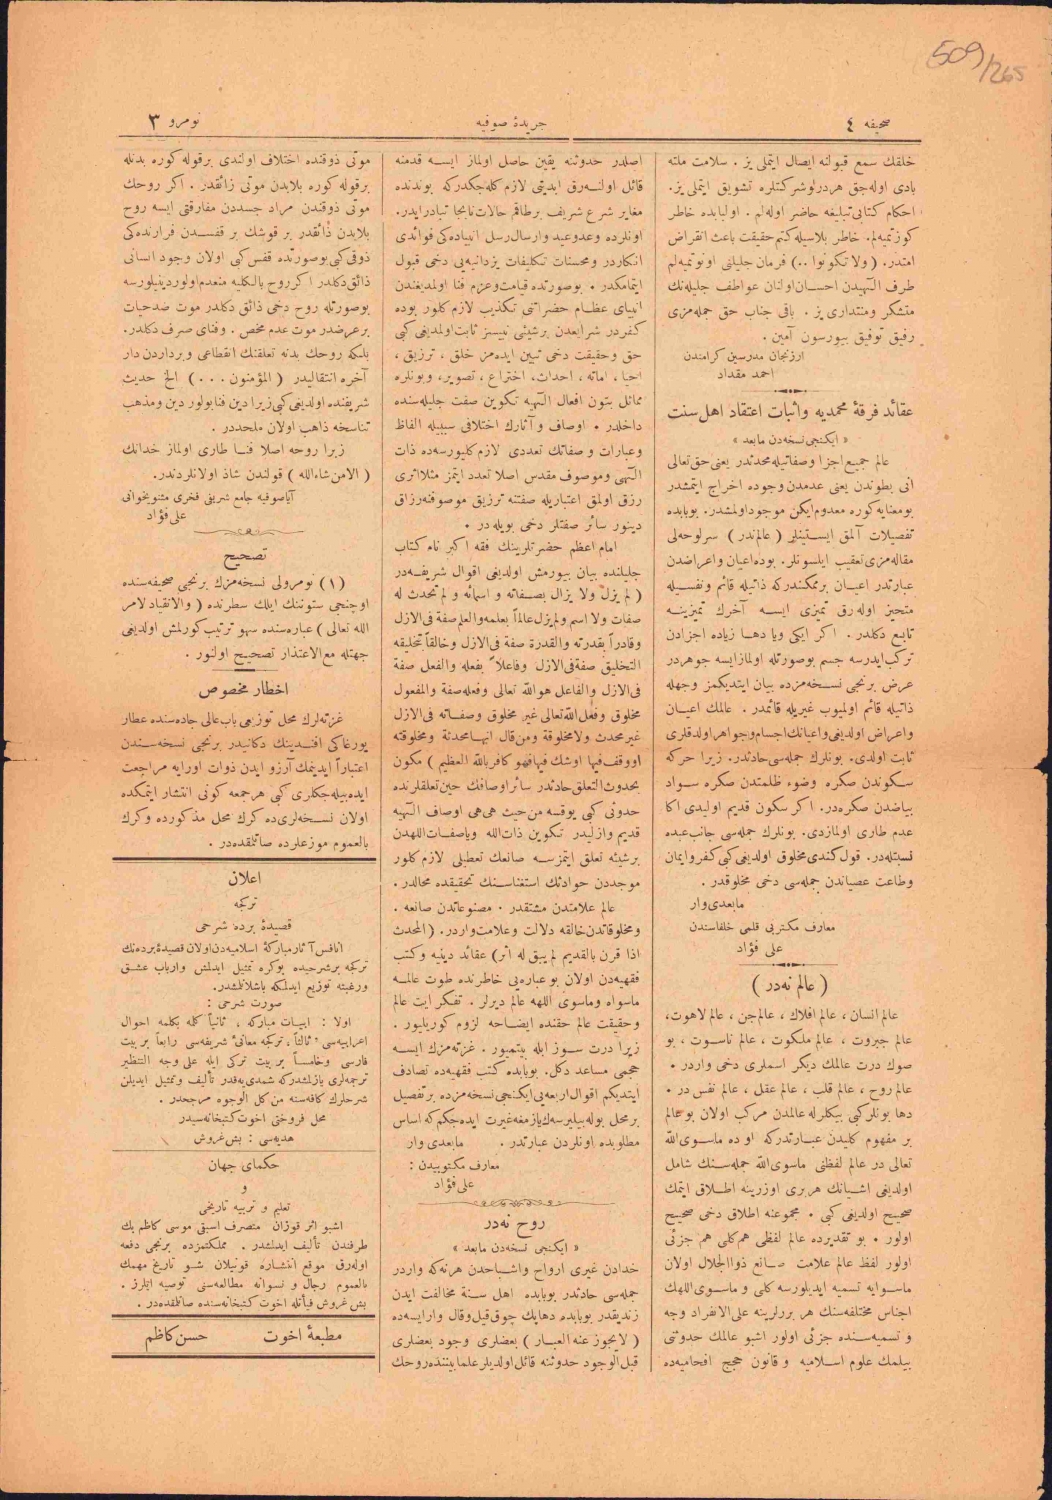 509/265
صحیفه ٤
جریدۀ صوفیه
نومرو ٣
خلقك سمع قبولنه ایصال ایتملی یز . سلامت ملته
بادی اوله‌جق هر درلو شرکتلره تشویق ایتملی یز.
احکام کتابی تبلیغه حاضر اوله‌لم . اولبابده خاطر
کوزتمیه‌لم. خاطر بلاسیله کتم حقیقت باعث انقراض
امتدر. ( ولا تکونوا ..) فرمان جلیلنی اونوتمیه‌لم
طرف الهیدن احسان اولنان عواطف جلیله‌نك
متشکر ومنتداری یز . باقی جناب حق جمله‌مزی
رفیق توفیق بیورسون آمین .
ارزنجان مدرسین کرامندن
احمد مقداد
عقائد فرقۀ محمدیه واثبات اعتقاد اهل سنت
« ایکنجی نسخه‌دن مابعد »
عالم جمیع اجزا وصفاتیله محدثدر یعنی حق تعالی
انی بطوندن یعنی عدمدن وجوده اخراج ایتمشدر
بومعنایه کوره معدوم ایکن موجود اولمشدر. بوبابده
تفصیلات آلمق ایستینلر (عالم ندر) سرلوحه‌لی
مقاله‌مزی تعقیب ایلسونلر. بوده اعیان واعراضدن
عبارتدر اعیان بر ممکندرکه ذاتیله قائم ونفسیله
متحیز اوله‌رق تمیزی ایسه آخرك تمیزینه
تابع دکلدر . اکر ایکی ویا دها زیاده اجزادن
ترکب ایدرسه جسم بوصورتله اولماز ایسه جوهردر
عرض برنجی نسخه‌مزده بیان ایتدیکمز وجهله
ذاتیله قائم اولمیوب غیریله قائمدر . عالمك اعیان
واعراض اولدیغی واعیانك اجسام وجواهر اولدقلری
ثابت اولدی. بونلرك جمله‌سی حادثدر. زیرا حرکه
سکوندن صکره وضوء ظلمتدن صکره سواد
بیاضدن صکره‌در. اکر سکون قدیم اولیدی اکا
عدم طاری اولمازدی. بونلرك جمله‌سی جانب عبده
نسبتله‌در. قول کندی مخلوق اولدیغی کبی کفر وایمان
وطاعت عصیاندن جمله‌سی دخی مخلوقدر .
مابعدی وار
معارف مکتوبی قلمی خلفاسندن
علی فؤاد
( عالم نه‌در )
عالم انسان ، عالم افلاك ، عالم جن ، عالم لاهوت،
عالم جبروت ، عالم ملکوت ، عالم ناسوت ، بو
صوك درت عالمك دیکر اسملری دخی واردر .
عالم روح ، عالم قلب ، عالم عقل ، عالم نفس در .
دها بونلر کبی بیکلرله عالمدن مرکب اولان بو عالم
بر مفهوم کلیدن عبارتدرکه او ده ماسوی الله
تعالی در عالم لفظنی ماسوی الله جمله‌سنك شامل
اولدیغی اشیانك هر بری اوزرینه اطلاق ایتمك
صحیح اولدیغی کبی . مجموعنه اطلاق دخی صحیح
اولور . بو تقدیرده عالم لفظی هم کلی هم جزئی
اولور لفظ عالم علامت صانع ذوالجلال اولان
ماسوایه تسمیه ایدیلورسه کلی و ماسوی اللهك
اجناس مختلفه‌سنك هر بررلرینه علی الانفراد وجه
و تسمیه‌سنده جزئی اولور اشبو عالمك حدوثنی
بیلمك علوم اسلامیه و قانون حجج افحامیه‌ده
اصلدر حدوثنه یقین حاصل اولماز ایسه قدمنه
قائل اولنه‌رق ابدیتی لازم کله‌جکدرکه بوندنده
مغایر شرع شریف برطاقم حالات نابجا تبادر ایدر.
اونلرده وعد وعید وارسال رسل انبیاده‌کی فوائدی
انکاردر ومحسنات تکلیفات یزدانیه‌یی دخی قبول
ایتمامکدر . بوصورتده قیامت وعزم فنا اولمدیغندن
انبیای عظام حضراتنی تکذیب لازم کلور بوده
کفردر شرایعدن برشیئی نیسز ثابت اولمدیغی کبی
حق وحقیقت دخی تبین ایده‌مز خلق ، ترزیق ،
احیا ، اماته ، احداث، اختراع ، تصویر، وبونلره
مماثل بتون افعال الهیه تکوین صفت جلیله‌سنده
داخلدر . اوصاف وآثارك اختلافی سببیله الفاظ
وعبارات و صفاتك تعددی لازم کلیورسه‌ده ذات
الهی وموصوف مقدس اصلا تعدد ایتمز مثلا اثری
رزق اولمق اعتباریله صفتنه ترزیق موصوفنه رزاق
دینور سائر صفتلر دخی بویله‌ در .
امام اعظم حضرتلرینك فقه اکبر نام کتاب
جلیلنده بیان بیورمش اولدیغی اقوال شریفه‌در
( لم یزل ولا یزال بصفاته و اسمائه و لم تحدث له
صفات ولا اسم ولم یزل عالماً بعلمه والعلم صفة فی الازل
وقادراً بقدرته والقدرة صفة فی الازل وخالقاً تخلیقه
التخلیق صفة فی الازل وفاعلاً بفعله والفعل صفة
فی الازل والفاعل هو الله تعالی وفعله صفة والمفعول
مخلوق وفعل الله تعالی غیر مخلوق وصفاته فی الازل
غیر محدث ولا مخلوقة ومن قال انها محدثة ومخلوقته
اووقف فیها اوشك فیها فهو کافر بالله العظیم ) مکون
بحدوث التعلق حادثدر سائر اوصافك حین تعلقلرنده
حدوثی کبی یوقسه من حیث هی هی اوصاف الهیه
قدیم وازلیدر تکوین ذات الله ویا صفات اللهدن
برشیئه تعلق ایتمزسه صانعك تعطیلی لازم کلور
موجددن حوادثك استغناسنك تحقیقده محالدر.
عالم علامتدن مشتقدر . مصنوعاتدن صانعه .
ومخلوقاتدن خالقه دلالت وعلامت واردر. (المحدث
اذا قرن بالقدیم لم یبق له اثر) عقائد دینیه وکتب
فقهیه‌دن اولان بو عباره‌یی خاطرنده طوت عالمه
ماسواه وماسوی اللهه عالم دیرلر . تفکر ایت عالم
وحقیقت عالم حقنده ایضاحه لزوم کوریلیور .
زیرا درت سوز ایله بیتمیور . غزته‌مزك ایسه
حجمی مساعد دکل. بوبابده کتب فقهیه‌ده تصادف
ایتدیکم اقوال اربعه‌یی ایکنجی نسخه‌مزده برتفصیل
بر محل بوله بیلیرسه‌ك یازمغه غیرت ایده‌جکم که اساس
مطلوبده اونلردن عبارتدر . مابعدی وار
معارف مکتوبیدن :
علی فؤاد
روح نه‌در
« ایکنجی نسخه‌دن مابعد »
خدادن غیری ارواح واشباحدن هرنه که واردر
جمله‌سی حادثدر بوبابده اهل سنة مخالفت ایدن
زندیقدر بوبابده دهاپك چوق قیل وقال وار ایسه‌ده
( لا یجوز عنه العبار ) بعضلری وجود بعضلری
قبل الوجود حدوثنه قائل اولدیلر علما بیننده روحك
موتی ذوقنده اختلاف اولندی برقوله کوره بدنله
برقوله کوره بلابدن موتی زائقدر . اکر روحك
موتی ذوقندن مراد جسددن مفارقتی ایسه روح
بلابدن ذائقدر بر قوشك بر قفسدن فرارنده‌کی
ذوقی کبی بوصورتده قفس کبی اولان وجود انسانی
ذائق دکلدر اکر روح بالکلیه منعدم اولور دینیلورسه
بوصورتله روح دخی ذائق دکلدر موت ضدحیات
برعرضدر موت عدم محض . وفنای صرف دکلدر.
بلکه روحك بدنه تعلقنك انقطاعی و برداردن دار
آخره انتقالیدر ( المؤمنون . . . ) الخ حدیث
شریفنده اولدیغی کبی زیرا دین فنا بولور دین ومذهب
تناسخه ذاهب اولان ملحددر .
زیرا روحه اصلا فنا طاری اولماز خدانك
( الا من شاء الله ) قولندن شاذ اولانلردندر.
آیاصوفیه جامع شریفی فخری مثنویخوانی
علی فؤاد
تصحیح
(١) نومرولی نسخه‌مزك برنجی صحیفه‌سنده
اوچنجی ستوننك ایلك سطرنده ( والانقیاد لامر
الله تعالی ) عباره‌سنده سهو ترتیب کورلمش اولدیغی
جهتله مع الاعتذار تصحیح اولنور .
اخطار مخصوص
غزته‌لرك محل توزیعی باب عالی جاده‌سنده عطار
یورغاکی افندینك دکانیدر برنجی نسخه‌سندن
اعتباراً ایدینمك آرزو ایدن ذوات اورایه مراجعت
ایده‌بیله‌جکلری کبی هر جمعه کونی انتشار ایتمکده
اولان نسخه‌لری‌ده کرك محل مذکورده وکرك
بالعموم موزعلرده صاتلمقده‌در .
اعلان
ترکجه
قصیدۀ برده شرحی
انافس آثار مبارکۀ اسلامیه‌دن اولان قصیدۀ برده‌نك
ترکجه برشرحیده بوکره تمثیل ایدلمش وارباب عشق
ورغبته توزیع ایدلمکه باشلانلمشدر.
صورت شرحی :
اولا : ابیات مبارکه ، ثانیاً کله بکلمه احوال
اعرابیه‌سی، ثالثاً، ترکجه معانئ شریفه‌سی رابعاً بر بیت
فارسی وخامساً بر بیت ترکی ایله علی وجه التنظیر
ترجمه‌لری یازلمشدرکه شمدی‌یه‌قدر تألیف وتمثیل ایدیلن
شرحلرك کافه‌سنه من کل الوجوه مرجحدر .
محل فروختی اخوت کتبخانه‌سیدر
هدیه‌سی : بش غروش
حکمای جهان
و
تعلیم و تربیه تاریخی
اشبو اثر قوزان متصرف اسبقی موسی کاظم بك
طرفندن تألیف ایدلمشدر . مملکتمزده برنجی دفعه
اوله‌رق موقع انتشاره قونیلان شو تاریخ مهمك
بالعموم رجال و نسوانه مطالعه‌سنی توصیه ایلرز .
بش غروش فیأتله اخوت کتبخانه‌سنده صاتلمقده‌در .
مطبعۀ اخوت حسن کاظم